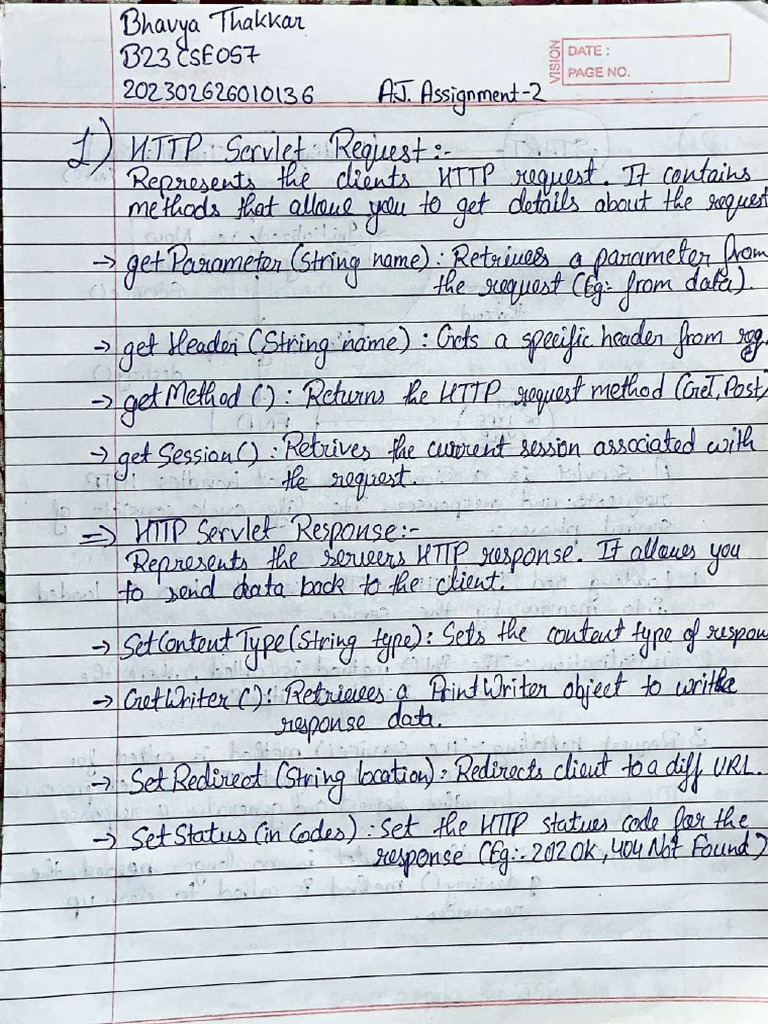 Bhavya Thakkar
B23CSE057
VISION
DATE :
PAGE NO.
202302626010136 AJ. Assignment-2
1) HTTP Servlet Request :-
Represents the clients HTTP request. It contains
methods that allow you to get details about the request
→ getParameter(String name) : Retrives a parameter from
the request (Eg:- from data).
→ getHeader (String name) : Gets a specific header from req.
→ getMethod () : Returns the HTTP request method (GET, Post)
→ getSession() : Retrives the current session associated with
the request.
⇒ HTTP Servlet Response:-
Represents the servers HTTP response. It allows you
to send data back to the client.
→ SetContentType(String type) : Sets the content type of respon
→ GetWriter () : Retrieves a PrintWriter object to write
response data.
→ SetRedirect (String location) : Redirects client to a diff URL.
→ SetStatus (in Codes) : Set the HTTP status code for the
response (Eg:- 202 OK, 404 Not Found)